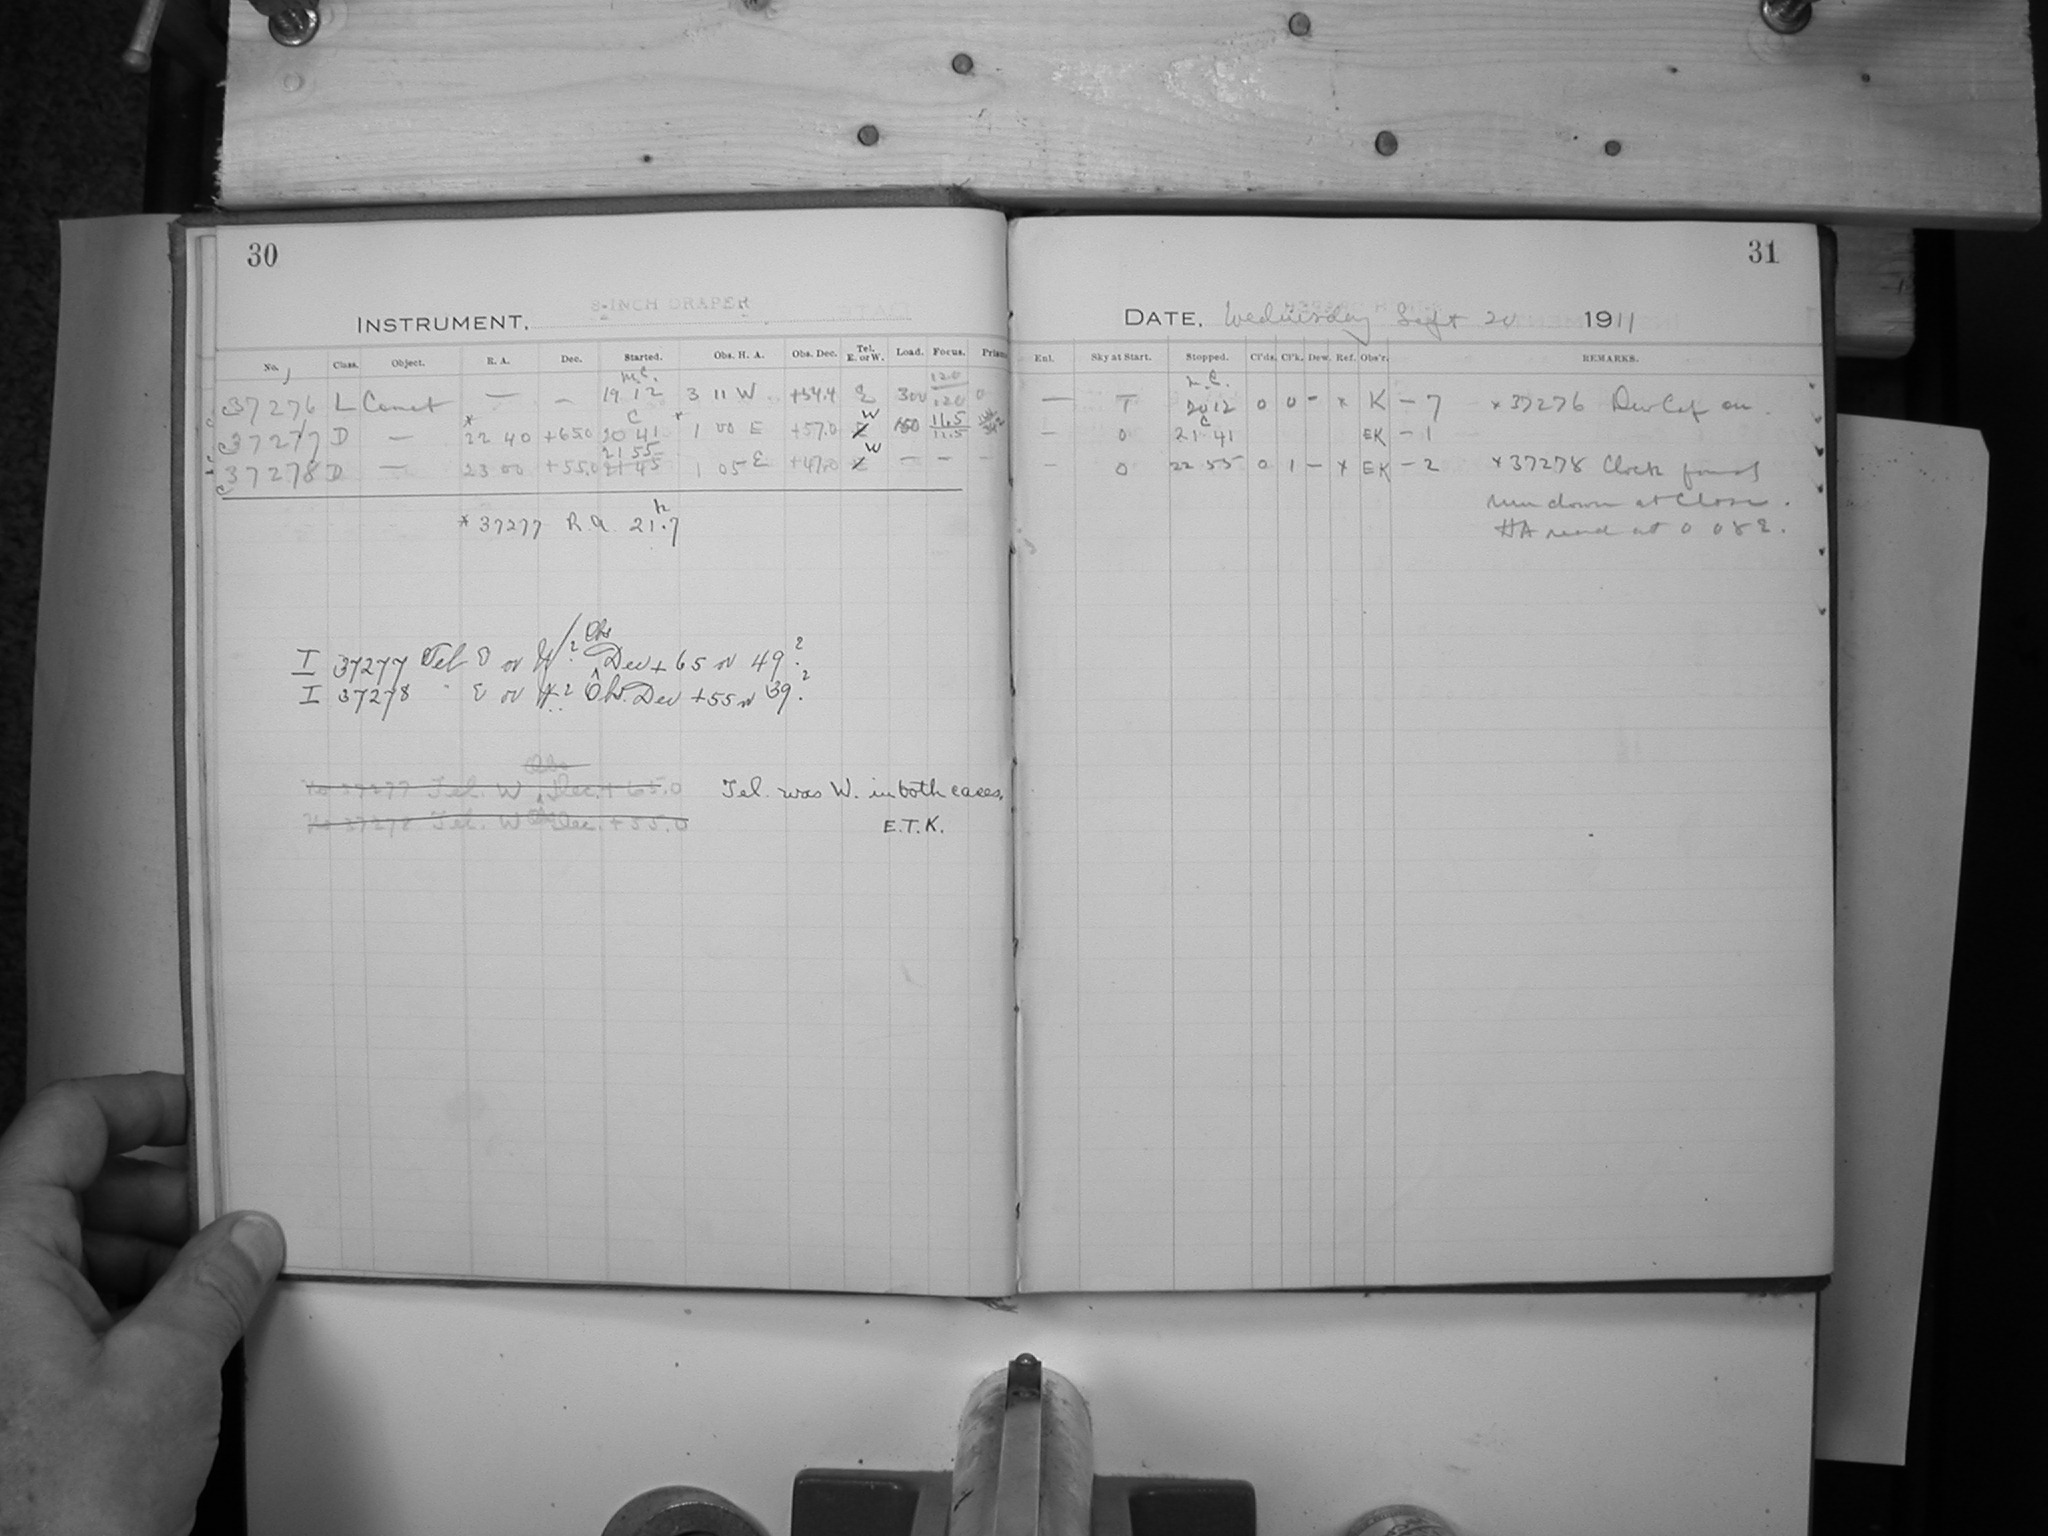 30
8-INCH DRAPER
INSTRUMENT.
No. Class. Object. R. A. Dec. Started. Obs. H. A. Obs. Dec. Tel. E. or W. Load. Focus. Prism
37276 L Comet — — 19 12 3 11 W +54.4 E 300 12.0 12.0 0
37277 D — * 22 40 +65.0 20 41 * 1 00 E +57.0 W 11.5 11.5
37278 D — 23 00 +55.0 21 55 21 45 1 05 E +47.0 W — — —
* 37277 R.A. 21.7 h
I 37277 Tel E or W? Obs Dec + 65 or 49?
I 37278 " E or W? Obs. Dec +55 or 39?
Obs
No 37277 Tel. W Dec. + 65.0 Tel. was W. in both cases.
No 37278 Tel. W Obs Dec. + 55.0 E.T.K.
31
DATE, Wednesday Sept 20 1911
Enl. Sky at Start. Stopped. Cl'ds. Cl'k. Dew. Ref. Obs'r. REMARKS.
— T 20 12 0 0 - x K - 7 * 37276 Dew Cap on.
— 0 C 21 41 EK - 1
— 0 22 55 0 1 - x EK - 2 * 37278 Clock found
run down at close.
HA read at 0 08 E.